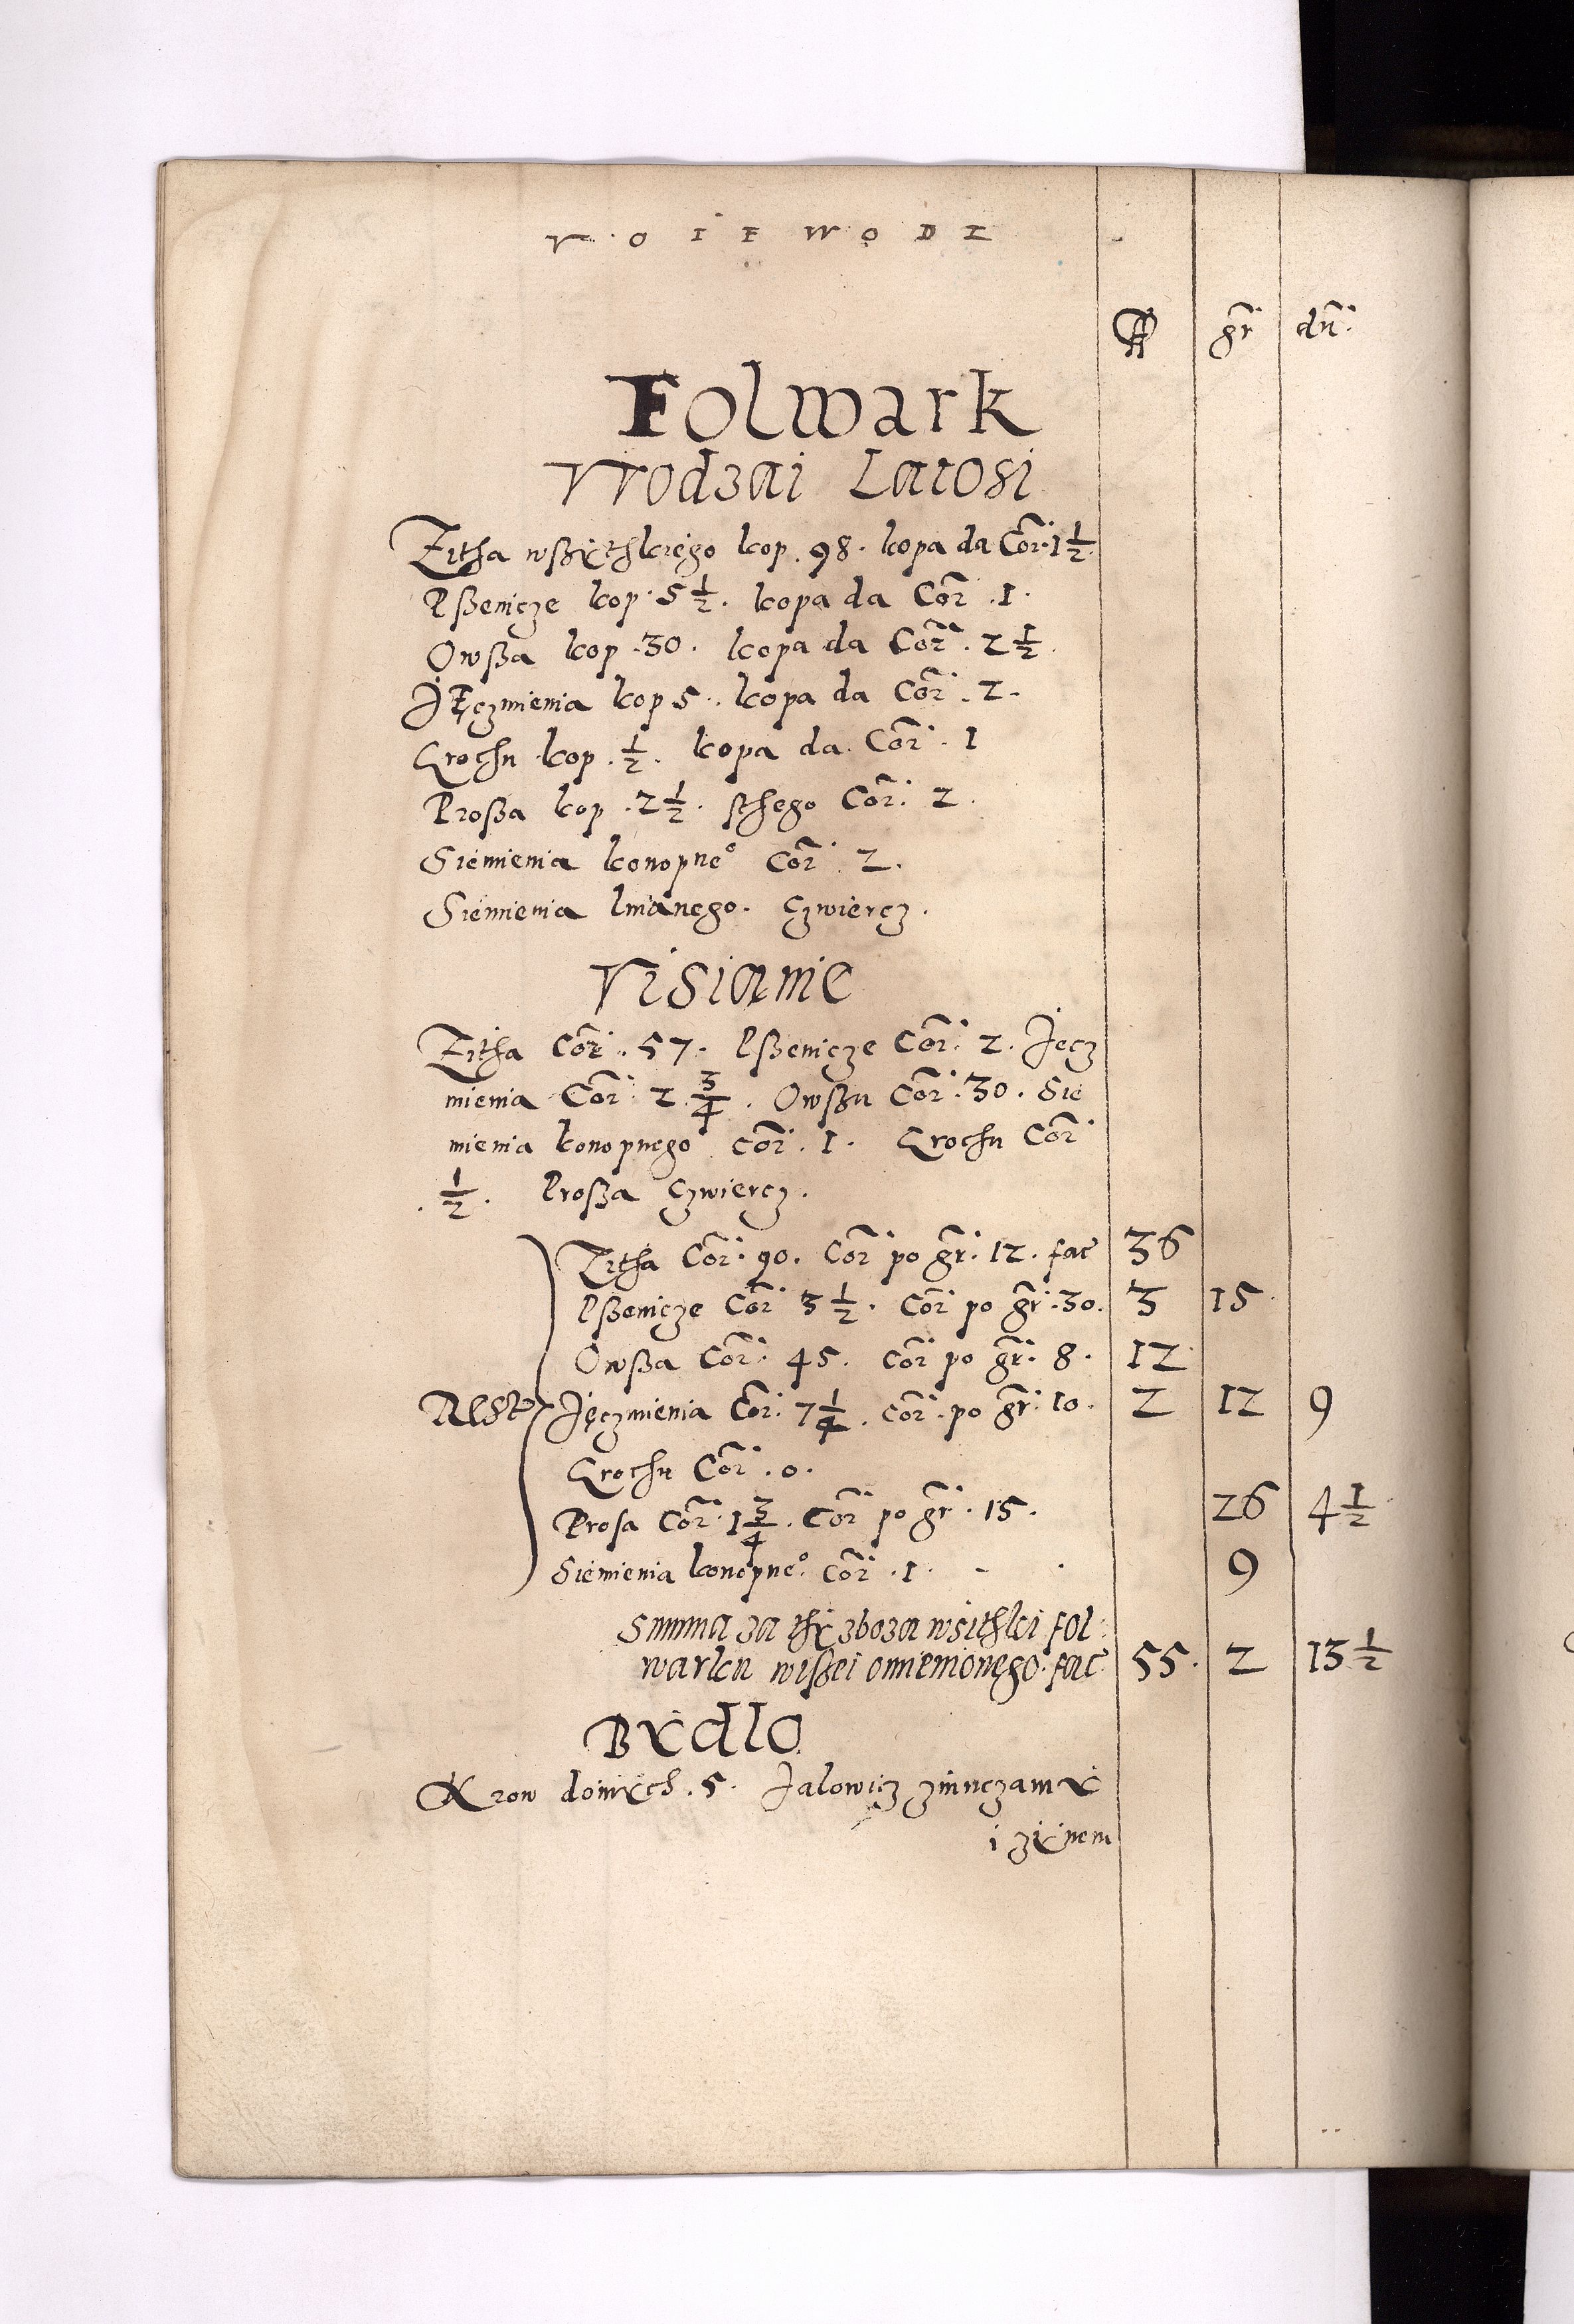 VOIEWODZ
gr dn.
Folwark
Vrodzai Latosi
Zitha wssythkiego kop. 98. kopa da Cor. 1 1/2.
Pssenicze kop. 5 1/2. kopa da Cor. 1.
Owssa kop. 30. kopa da Cor. 2 1/2.
Jęczmienia kop 5. kopa da Cor. 2.
Grochu kop. 1/2. kopa da. Cor. 1
Prossa kop. 2 1/2. sthego Cor. 2.
Siemienia konopne° Cor. 2.
Siemienia lnianego. czwiercz.
Visianie
Zitha Cor. 57. Psseniczę Cor. 2. Jęcz
mienia Cor. 2 3/4. Owssu Cor. 30. Sie
mienia konopnego cor. 1. Grochu Cor.
. 1/2. Prossa czwiercz.
Zitha Cor. 90. Cor po gr. 12. fac 36
Psseniczę Cor. 3 1/2. Cor po gr. 30. 3 15.
Owssa Cor. 45. Cor po gr. 8. 12
Rest Jęczmienia Cor. 7 1/4. Cor. po gr. 10. 2 12 9
Grochu Cor. 0.
Prosa Cor. 1 3/4. Cor po gr. 15. 26 4 1/2
Siemienia konopne° Cor. 1. - . 9
Summa za thy zboza wsithki fol:
warku wissei omienionego. fac 55. 2 13 1/2
Bydlo
Krow doinych. 5. Jalowicz zinuczamy
i zyinem